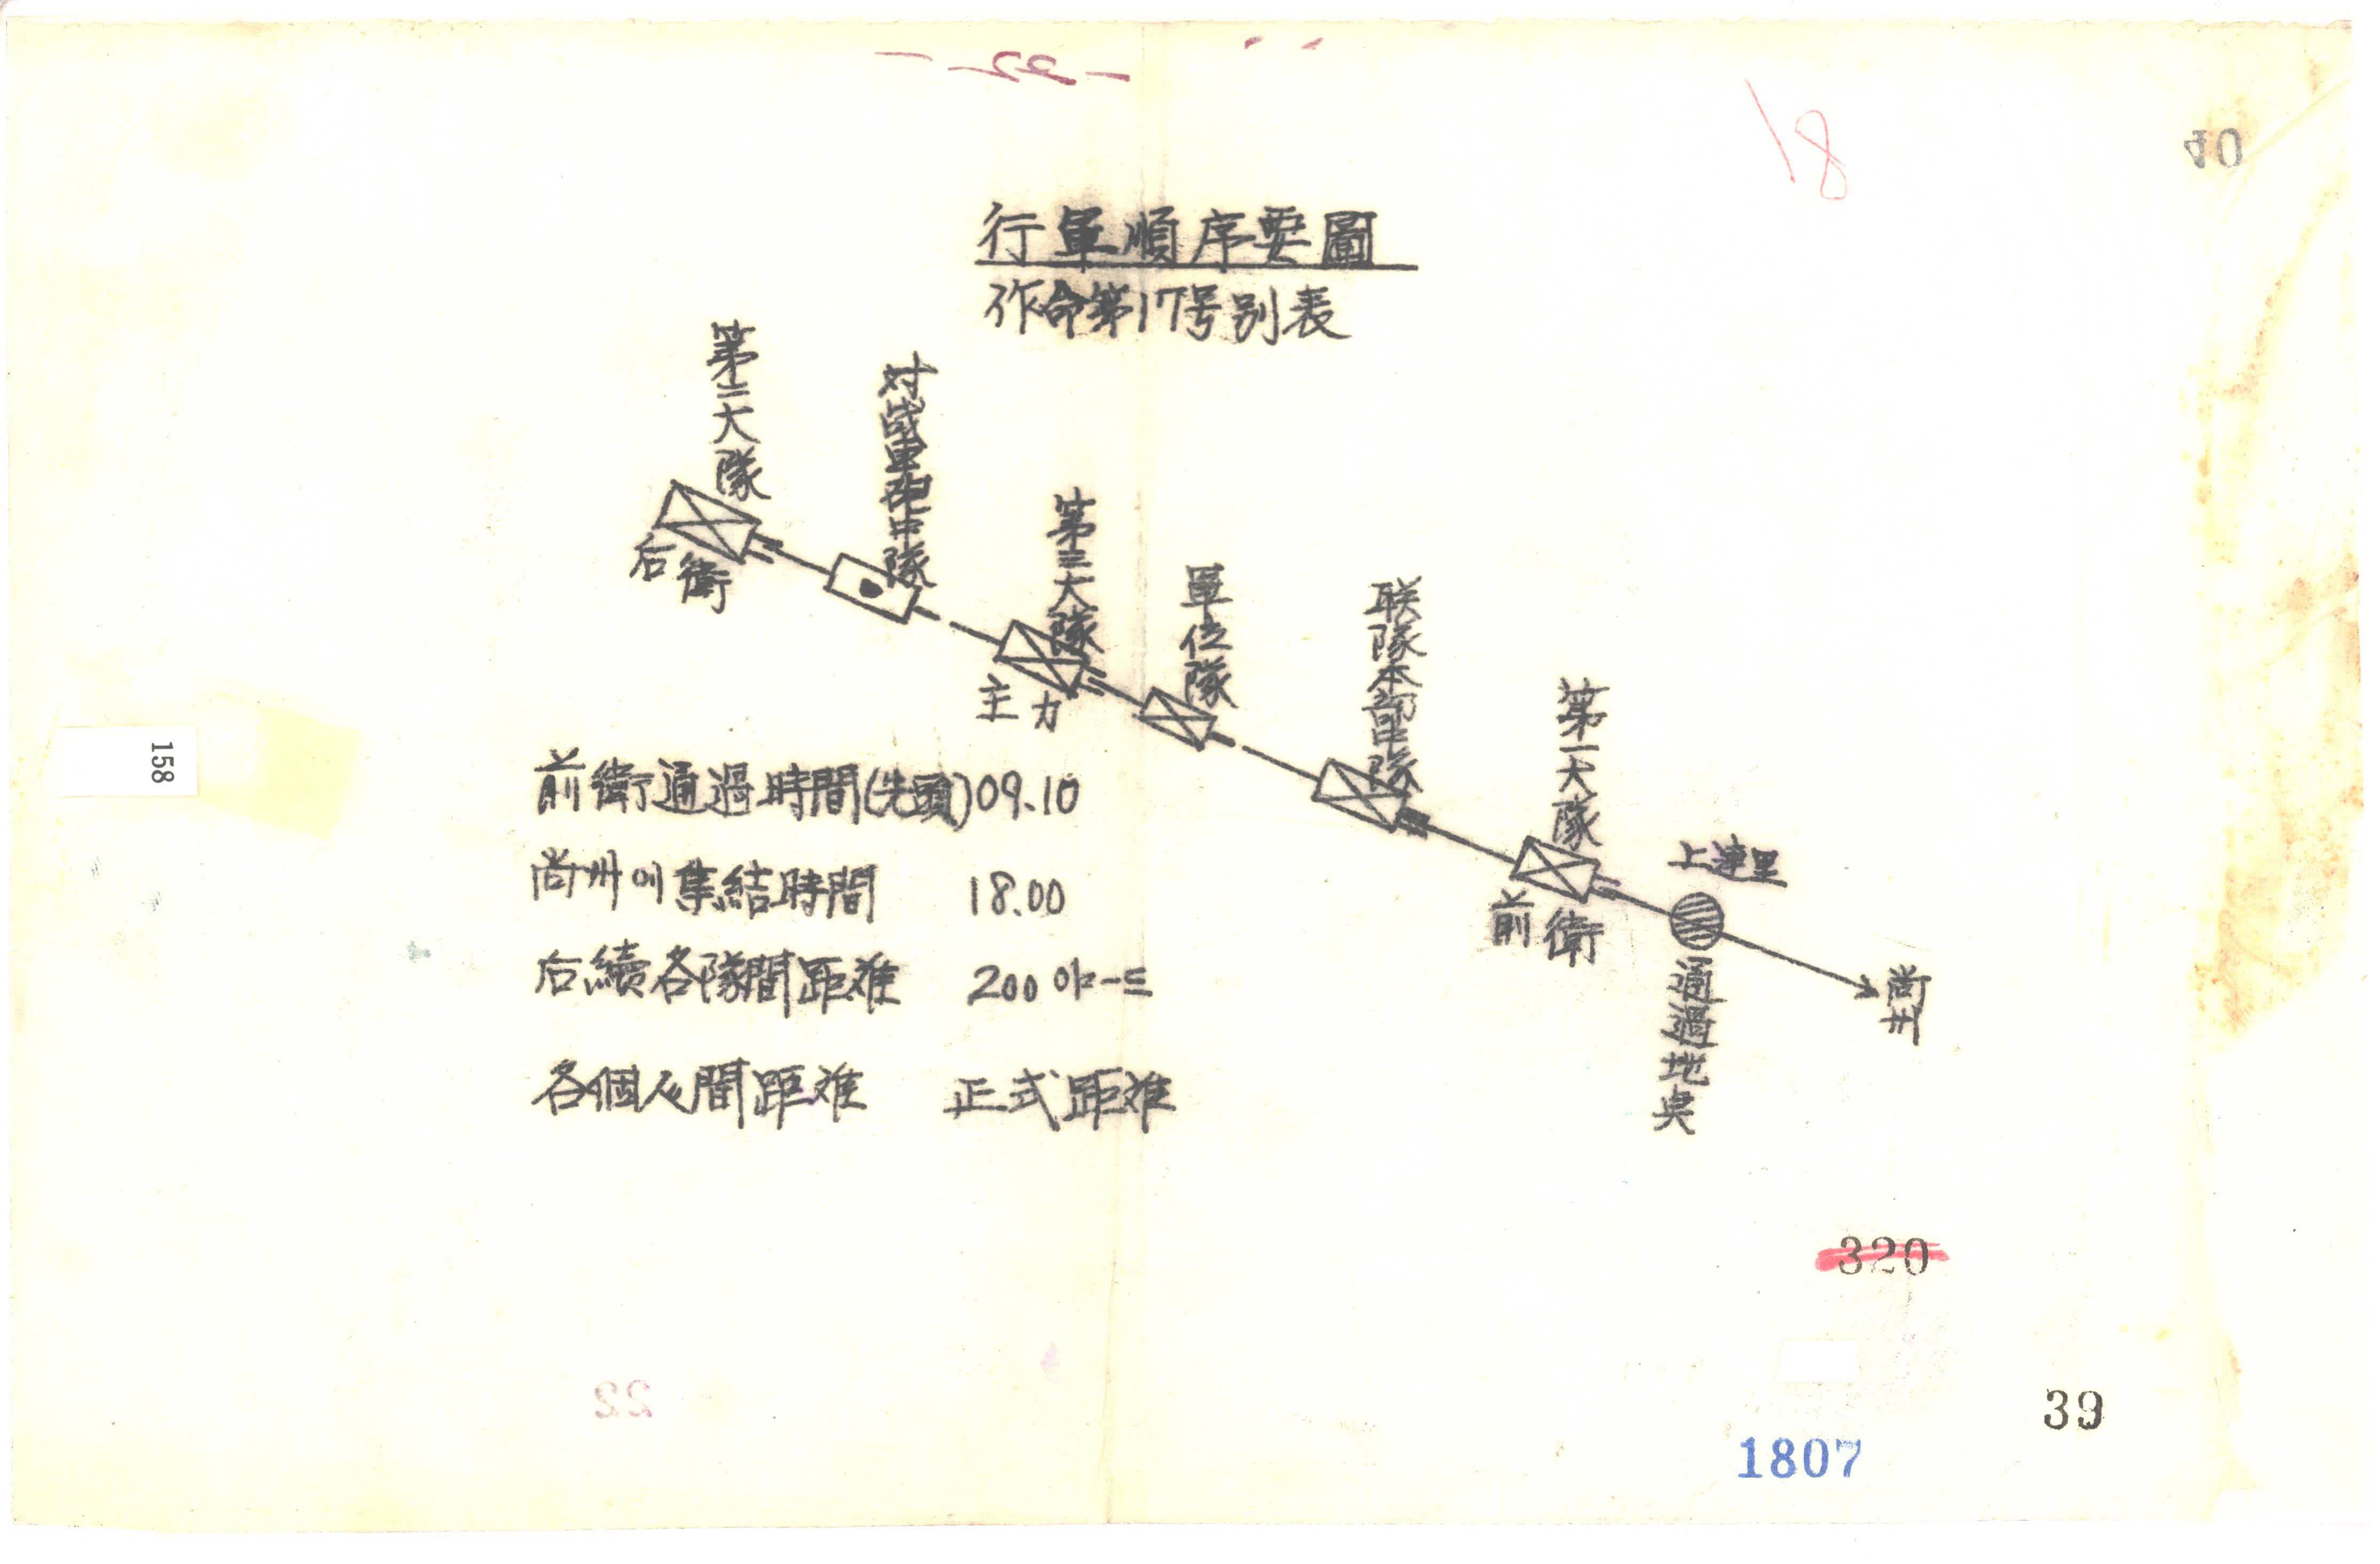 40
18
行軍順序要圖
作命第17号別表
第二大隊
后衛
对战車砲中隊
第三大隊
主力
單位隊
联隊本部中隊
第一大隊
前衛
上達里
通過地奌
尙州
前衛通過時間(先頭)09.10
尙州에集結時間 18.00
后續各隊間距離 200야-드
各個人間距離 正式距離
158
320
22
39
1807